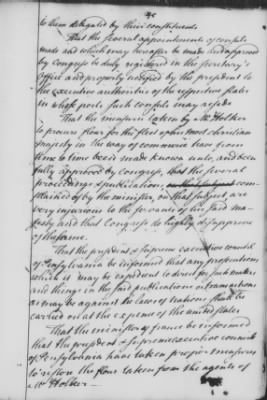 to them delegated by their constituents.
That the several appointments of consuls
made and which may hereafter be made and approved
by congress be duly registered in the secretary's
office and properly notified by the president to
the executive authorities of the respective states
in whose ports such consuls may reside
That the measures taken by Mr Holker
to procure flour for the fleet of his most christian
majesty in the way of commerce have from
time to time been made known unto, and been
fully approved by congress, that the several
proceedings & publications, com-
plained of by the minister, on that subject are
very injurious to the servants of his said ma-
jesty and that Congress do highly disapprove
of the same.
That the president & supreme executive council
of Pensylvania be informed that any prosecutions
which it may be expedient to direct for such matters
and things in the said publications or transactions
as may be against the laws of nations shall be
carried on at the expence of the united states
That the minister of france be informed
that the president & supreme executive council
of Pensylvania have taken proper measures
to restore the flour taken from the agents of
Mr Holker.